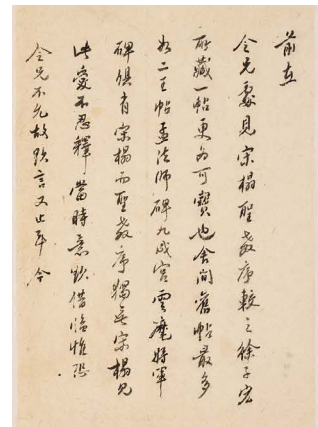 前在
令兄处見宋榻聖教序較之徐子宏
所藏一帖更為可寶也舍间舊帖最多
如二王帖孟法師碑九成宮雲麾將軍
碑俱有宋榻而聖教序獨無宋榻見
此愛不忍釋當時意欲借臨惟恐
令兄不允故欲言又止耳今